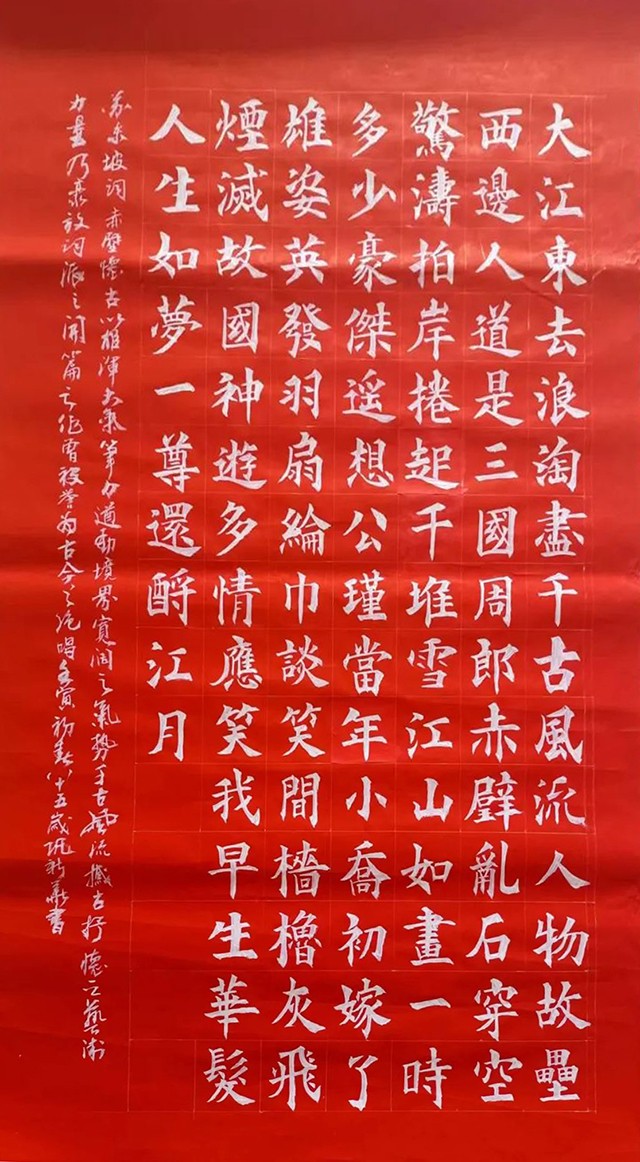 大江東去浪淘盡千古風流人物故壘
西邊人道是三國周郎赤壁亂石穿空
驚濤拍岸捲起千堆雪江山如畫一時
多少豪傑遥想公瑾當年小喬初嫁了
雄姿英發羽扇綸巾談笑間檣櫓灰飛
煙滅故國神遊多情應笑我早生華髮
人生如夢一尊還酹江月
苏东坡词赤壁懷古以雄渾大氣筆力道勁境界寬阔之氣势千古風流撼古抒懷之藝术
力量乃豪放词派之開篇之作曾被誉为古今之绝唱壬寅初春八十五歲新華書